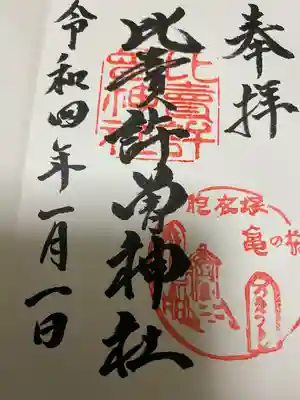 奉拝
比賣許曽神社
令和四年一月一日
比賣許
曽神社
胞衣塚
亀の